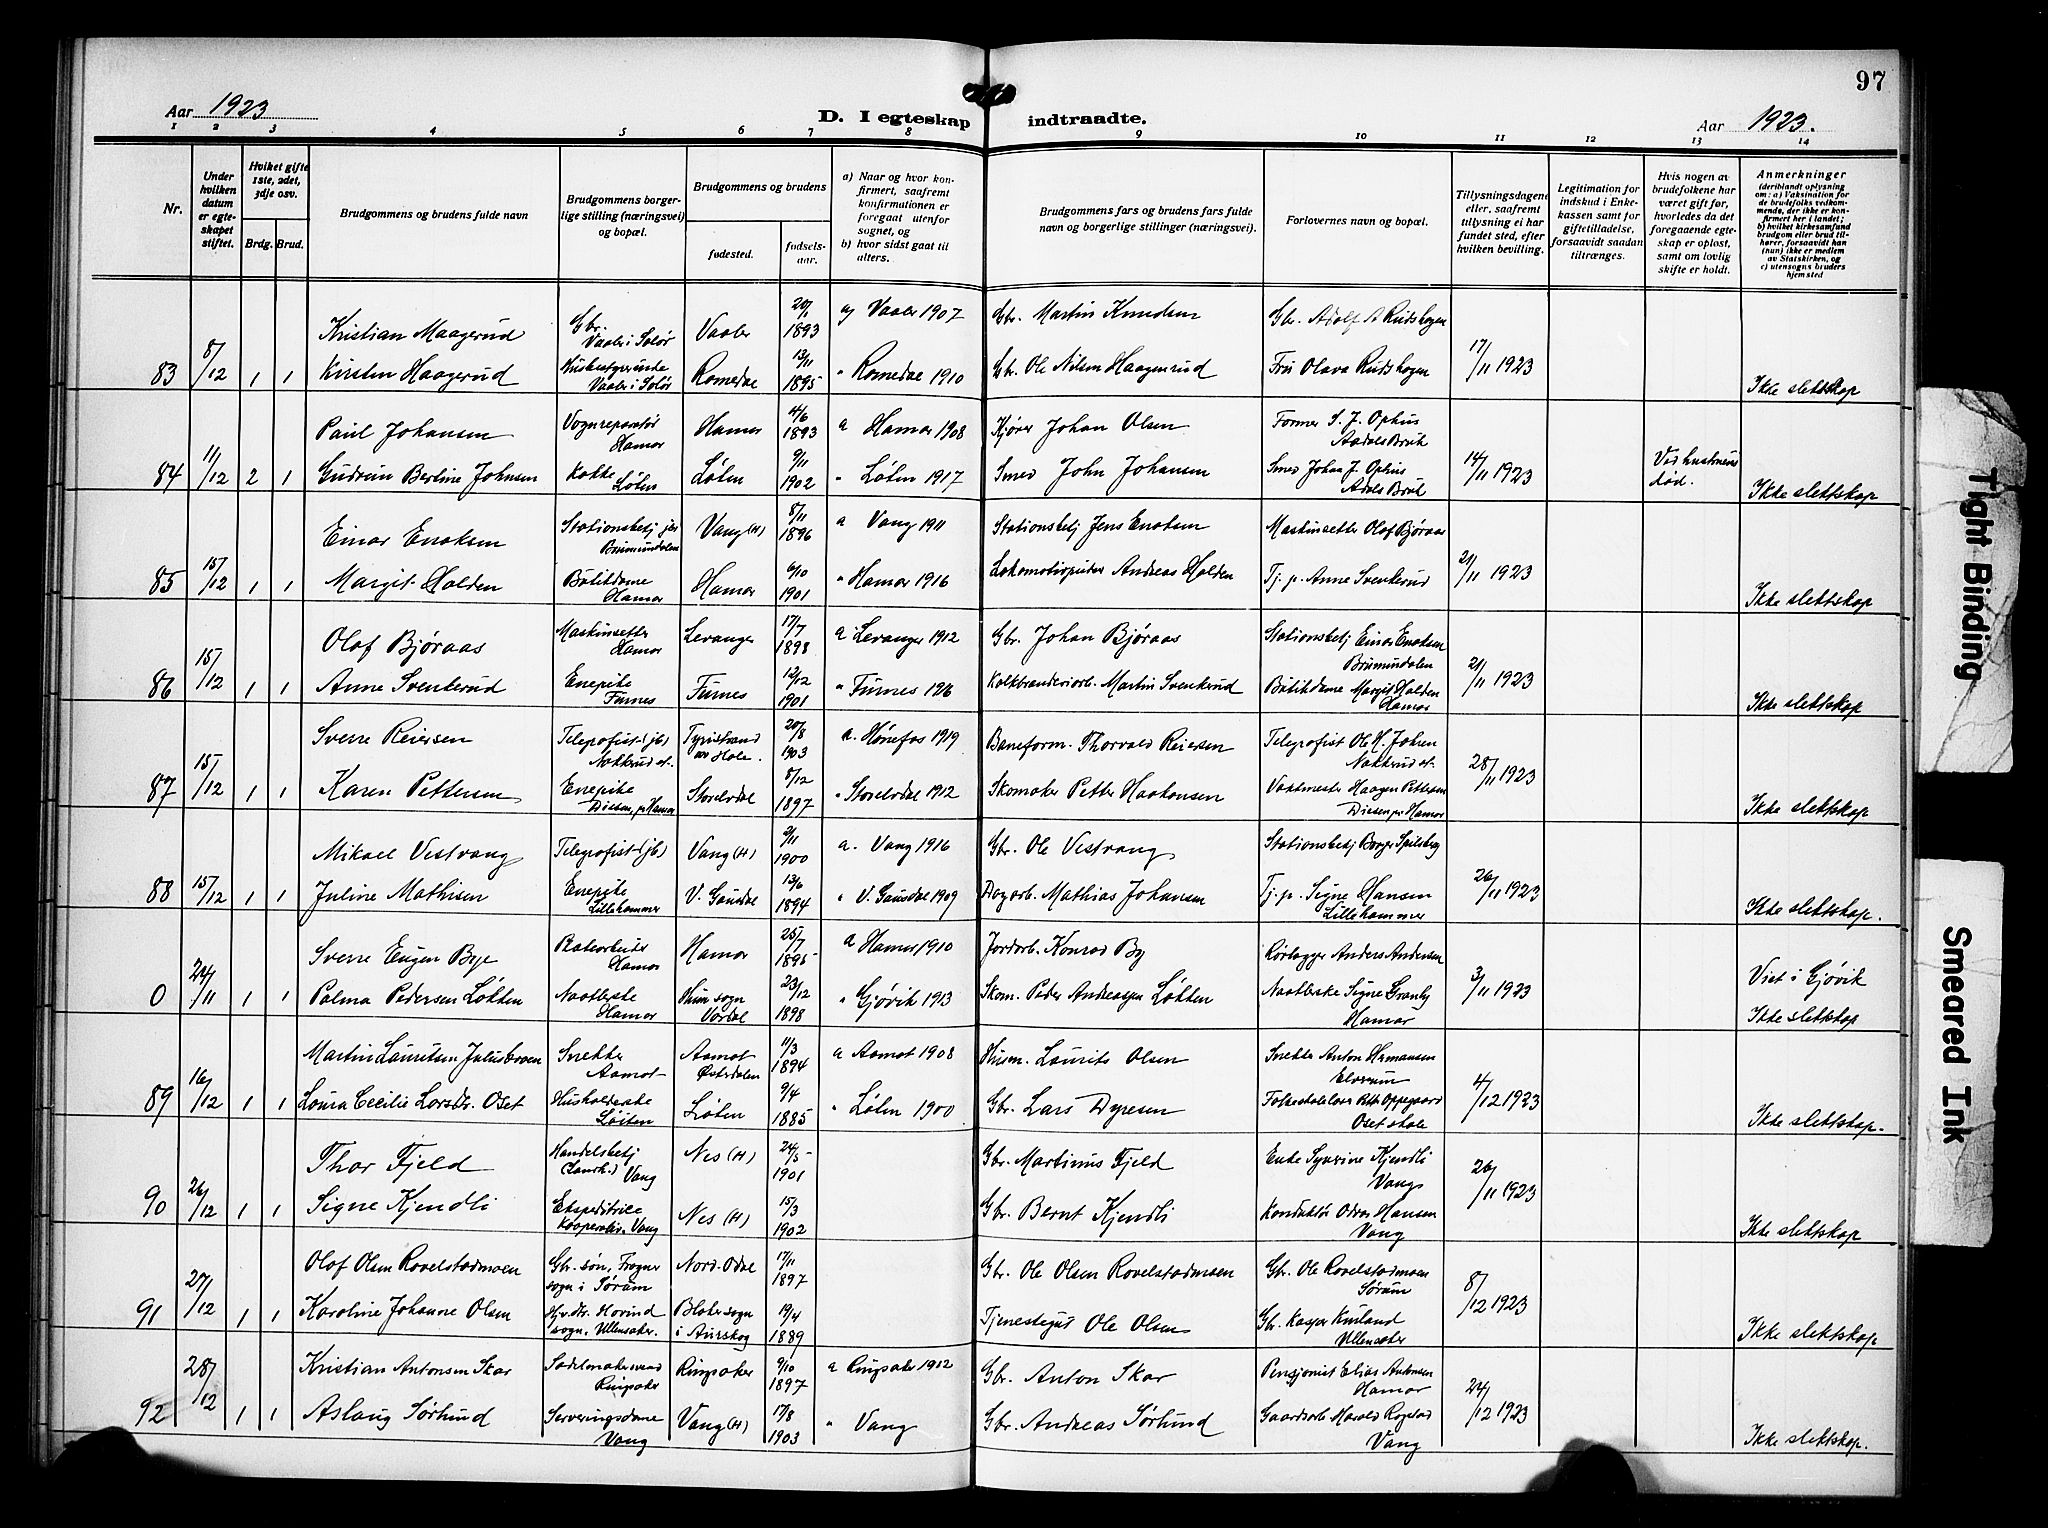 97
Aar 1923
D. I egteskap indtraadte.
Aar 1923.
1 2 3 4 5 6 7 8 9 10 11 12 13 14
Nr.
Under hvilken datum er egteskapet stiftet.
Hvilket gifte 1ste, 2det, 3dje osv.
Brdg. Brud.
Brudgommens og brudens fulde navn
Brudgommens borgerlige stilling (næringsvei) og bopæl.
Brudgommens og brudens
fødested.
fødselsaar.
a) Naar og hvor konfirmert, saafremt konfirmationen er foregaat utenfor sognet, og
b) hvor sidst gaat til alters.
Brudgommens fars og brudens fars fulde navn og borgerlige stillinger (næringsvei).
Forlovernes navn og bopæl.
Tillysningsdagene eller, saafremt tillysning ei har fundet sted, efter hvilken bevilling.
Legitimation for indskud i Enkekassen samt for giftetilladelse, forsaavidt saadan tiltrænges.
Hvis nogen av brudefolkene har været gift før, hvorledes da det foregaaende egteskap er opløst, samt om lovlig skifte er holdt.
Anmerkninger
(deriblandt oplysning om: a) Vaksination for de brudefolks vedkommende, der ikke er konfirmert her i landet; b) hvilket kirkesamfund brudgom eller brud tilhører, forsaavidt han (hun) ikke er medlem av Statskirken, og c) utensogns bruders hjemsted
Kristian Maagerud Gbr. Vaaler i Solør Vaaler 20/1 1893 a) Vaaler 1907 Gbr. Martin Knudsen Gbr. Adolf A Rudshagen
83 8/12 1 1 Kirsten Haagerud Vaaler i Solør Romedal 13/11 1895 " Romedal 1910 Gbr. Ole Nilsen Haagenrud Fru Olava Rudshagen 17/11 1923 Ikke slektskap
Paul Johansen Vognreparatør Hamar Hamar 4/6 1893 a Hamar 1908 Kjører Johan Olsen Former S. J. Ophus Aadals Bruk
84 11/12 2 1 Gudrun Berline Johnsen Kokke Løten Løten 9/11 1902 " Løten 1917 Smed John Johansen Smed Johan J. Ophus Adals Bruk 14/11 1923 Ved hustruens død. Ikke slektskap
Einar Enoksen Stationsbetj jb Brumundalen Vang (H) 8/11 1896 a Vang 1911 Stationsbetj Jens Enoksen Maskinsetter Olaf Bjøraas
85 15/12 1 1 Margit Holden Butikdame Hamar Hamar 6/10 1901 " Hamar 1916 Lokomotivpudser Andreas Holden Tj. p. Anne Svenkerud 21/11 1923 Ikke slektskap
Olaf Bjøraas Maskinsetter Hamar Levanger 17/7 1898 a Levanger 1912 Gbr. Johan Bjøraas Stationsbetj Einar Enoksen Brumundalen
86 15/12 1 1 Anne Svenkerud Enepike Furnes Furnes 12/12 1901 " Furnes 1916 Kalkbrænderiarb. Martin Svenkerud Butikdame Margit Holden Hamar 21/11 1923 Ikke slektskap
Sverre Reiersen Telegrafist (jb) Nakkerud st. Tyristrand av Hole. 20/8 1903 a. Hønefos 1919 Baneform. Thorvald Reiersen Telegrafist Ole H. Johren Nakkerud st.
87 15/12 1 1 Karen Pettersen Enepike Disen, p. Hamar Storelvdal 8/12 1897 " Storelvdal 1912 Skomaker Petter Haakonsen Vaktmester Haagen Pettersen Disen pr. Hamar 28/11 1923 Ikke slektskap
Mikael Vestvang Telegrafist (jb) Vang (H) 2/11 1900 a. Vang 1916 Gbr. Ole Vestvang Stationsbetj Borger Spilsberg
88 15/12 1 1 Juline Mathisen Enepike Lillehammer V. Gausdal 13/6 1894 " V. Gausdal 1909 Dagarb. Mathias Johansen Tj. p. Signe Hansen Lillehammer 26/11 1923 Ikke slektskap.
Sverre Eugen Bye Hamar Hamar 25/7 1895 a Hamar 1910 Jordarb. Konrad By Rørlegger Anders Andersen
0 24/11 1 1 Palma Pedersen Løkken Hamar Hunn sogn Vardal 23/12 1898 " Gjøvik 1913 Skom. Peder Andreassen Løkken Signe Granby Hamar 3/11 1923 Viet i Gjøvik Ikke slektskap
Martin Lauritsen Julusbroen Snekker Aamot Aamot Østerdalen 11/3 1894 a Aamot 1908 Husm. Laurits Olsen Snekker Anton Hermansen Elverum
89 16/12 1 1 Louisa Cecilie Larsdr. Oset Husholderske Løiten Løten 9/4 1885 " Løten 1900 Gbr. Lars Dyresen Folkeskolelærer Oppegaard Oset skole 4/12 1923 Ikke slektskap.
Thor Fjeld Handelsbetj Vang Nes (H) 24/5 1901 Gbr. Martinus Fjeld Enke Syverine Kjendli Vang
90 26/12 1 1 Signe Kjendli Ekspeditrice Kooperativ. Vang Nes (H) 15/3 1902 Gbr. Bernt Kjendli Konduktør Odvar Hansen Vang 26/11 1923 Ikke slektskap
Olaf Olsen Rovelstadmoen Gbr. søn, Frogner sogn i Sørum Nord-Odal 17/11 1897 Gbr. Ole Olsen Rovelstadmoen Gbr. Ole Rovelstadmoen Sørum
91 27/12 1 1 Karoline Johanne Olsen Hovind sogn, Ullensaker. Blaker sogn i Aurskog 19/4 1889 Tjenestegut Ole Olsen Gbr. Kasper Kurland Ullensaker 8/12 1923 Ikke slektskap
Kristian Antonsen Skar Sadelmakersvend Ringsaker Ringsaker 9/10 1897 a Ringsaker 1912 Gbr. Anton Skar Pensjonist Elias Antonsen Hamar
92 28/12 1 1 Aslaug Sørlund Serveringsdame Vang Vang (H) 17/8 1903 " Vang Gbr. Andreas Sørlund Gaardsarb Harald Rogstad Vang 24/12 1923 Ikke slektskap.
Tight Binding
Smeared Ink